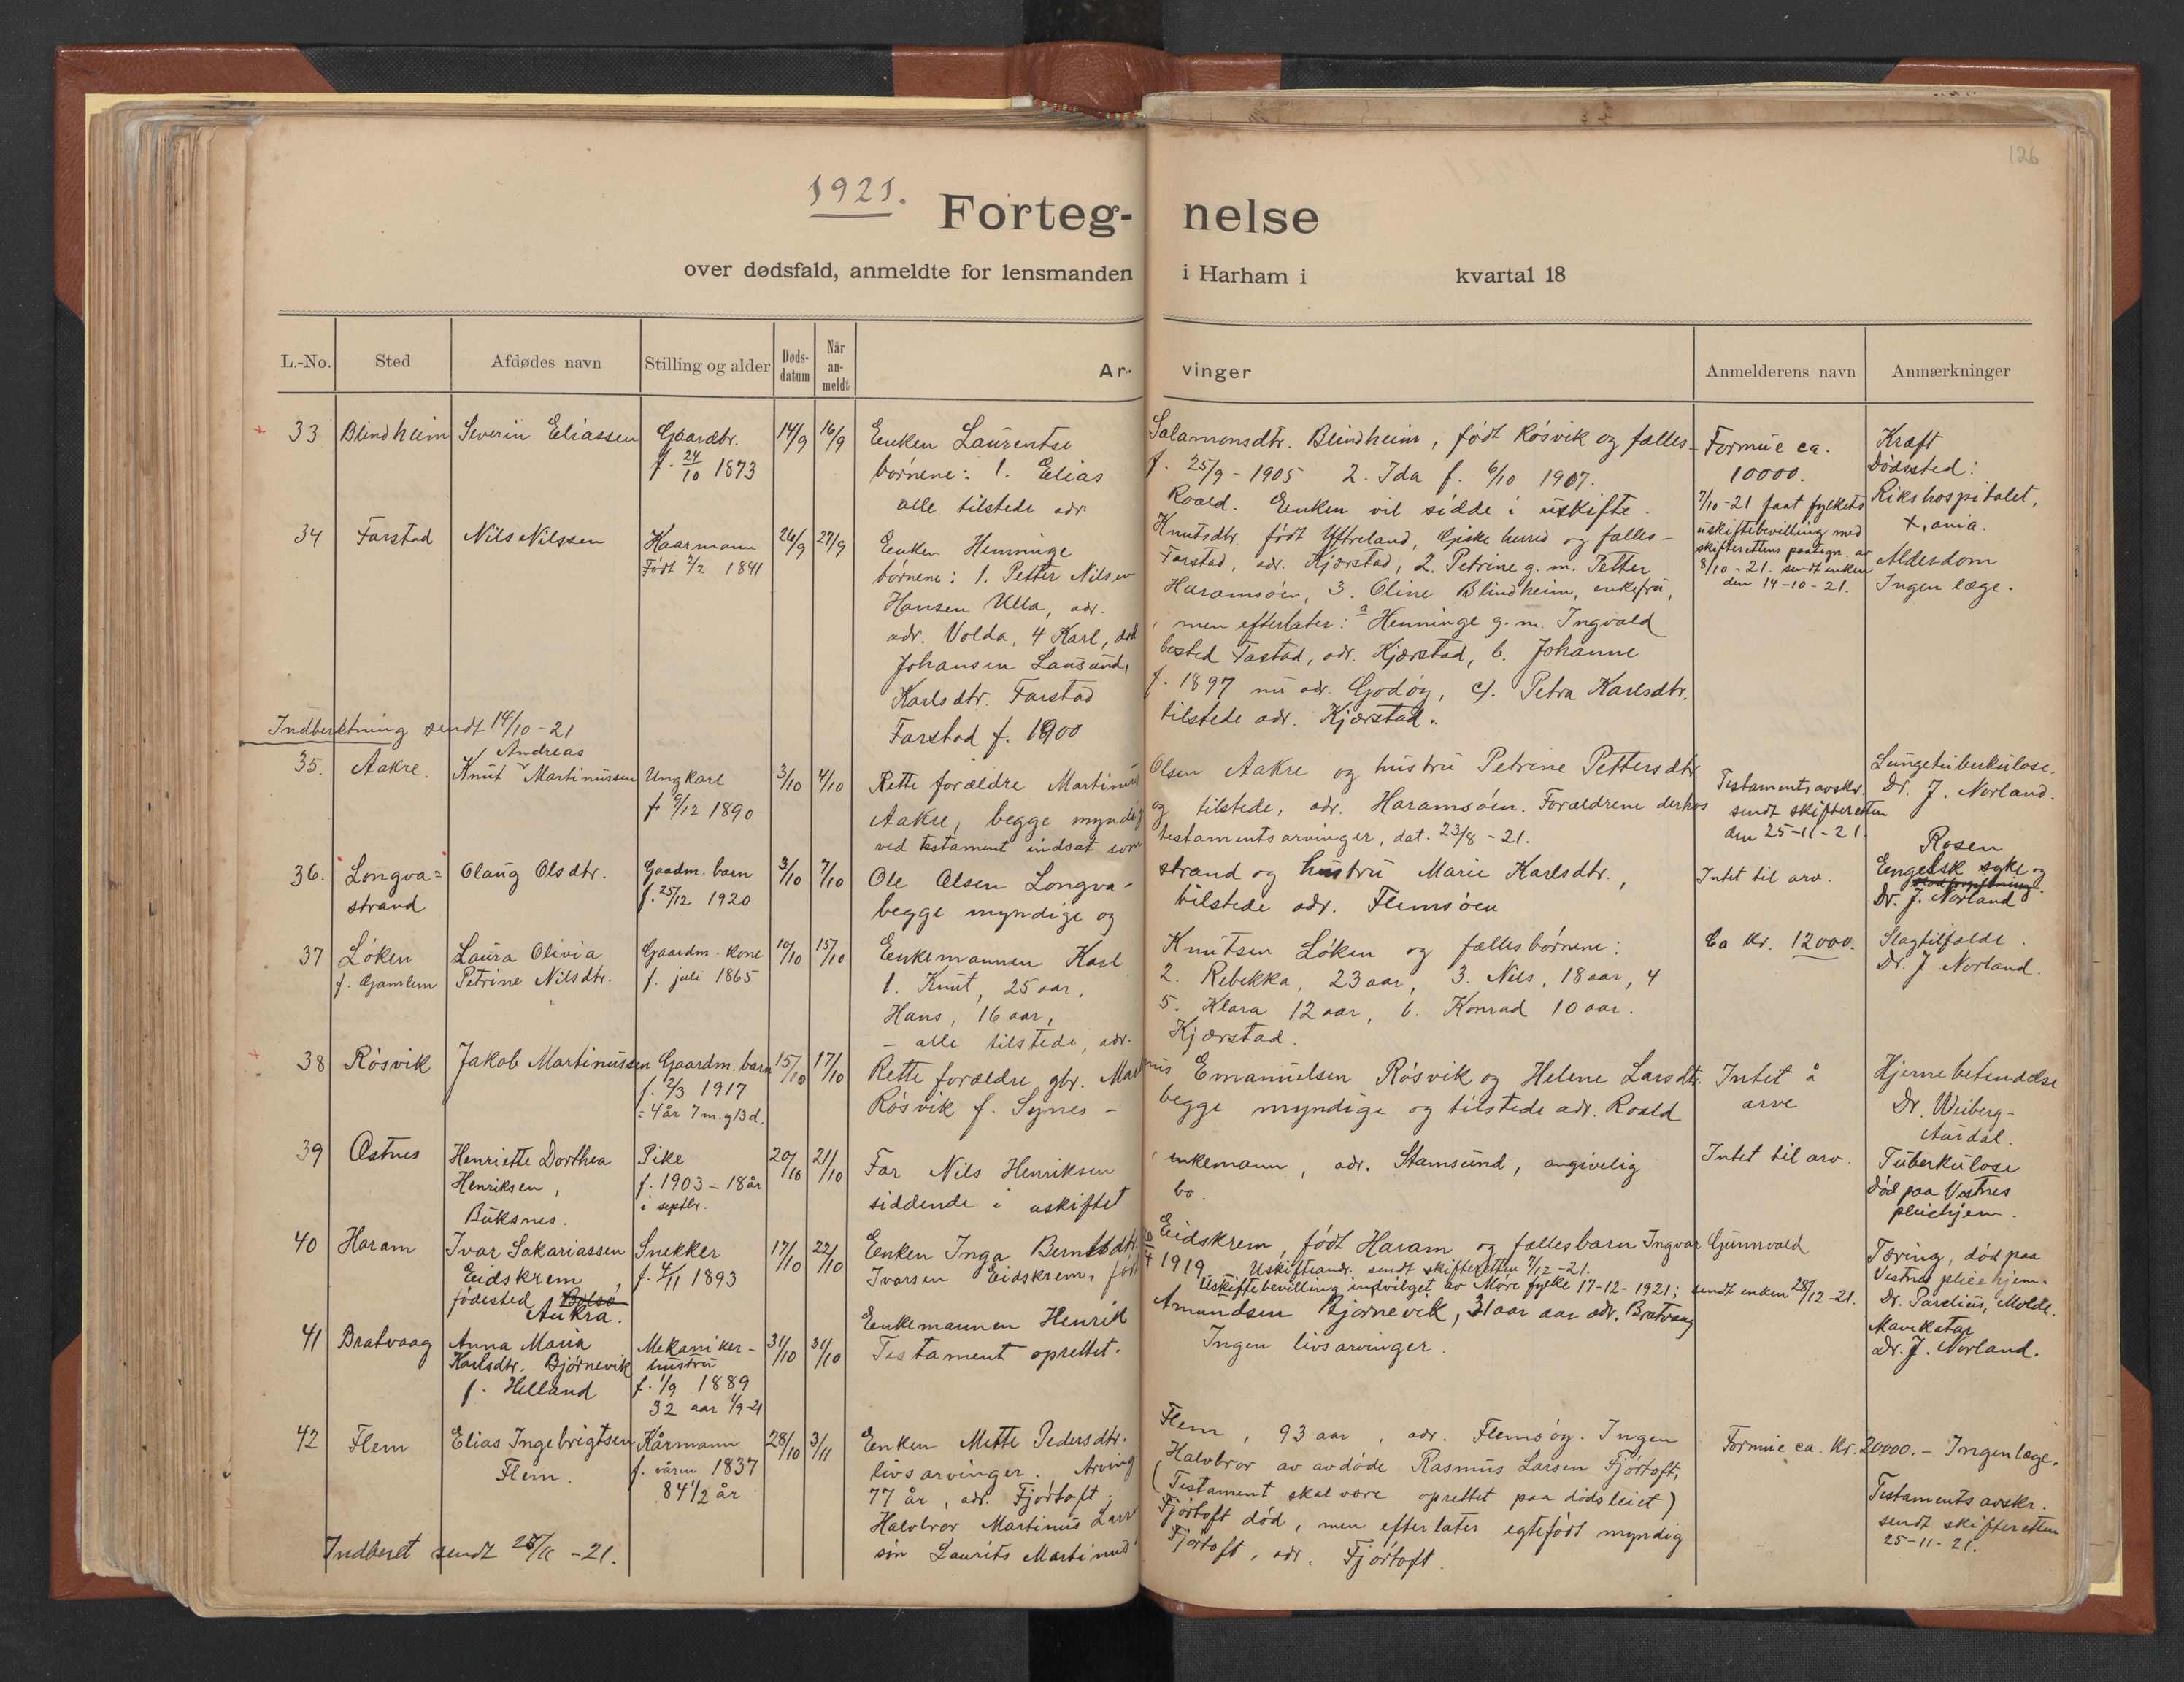 126
1921.
Forteg- nelse
over dødsfald, anmeldte for lensmanden i Harham i kvartal 18
L.-No. Sted Afdødes navn Stilling og alder Døds-datum Når an-meldt Ar- vinger Anmelderens navn Anmærkninger
33 Blindheim Severin Eliassen Gaardbr. 14/9 16/9 Enken Laurentse Salamonsdtr. Blindheim, født Røsvik og fælles- Formue ca. Kræft
f. 24/10 1873 børnene: 1. Elias f. 25/9 - 1905 2. Ida f. 6/10 1907. 10000. Dødssted:
alle tilstede adr. Roald. Enken vil sidde i uskifte. 7/10-21 faat fylkets Rikshospitalet,
34 Farstad Nils Nilssen Kaarmann 26/9 27/9 Enken Henninge Knutsdtr. født Ytterland, Giske herred og fælles- uskiftebevilling med X,ania.
Født 2/2 1841 børnene: 1. Petter Nilsen Farstad, adr. Kjærstad, 2. Petrine g. m. Petter skifterettens paategn. av Alderdom
Hansen Ulla, adr. Haramsøen, 3. Oline Blindheim, enkefru, 8/10-21. sendt enken den 14-10-21. Ingen læge.
adr. Volda, 4 Karl, død, men efterlater: a Henninge g. m. Ingvald
Johansen Lausund, bosted Farstad, adr. Kjærstad, b. Johanne
Karlsdtr. Farstad f. 1897 nu adr. Godøy, c). Petra Karlsdtr.
Farstad f. 1900 tilstede adr. Kjærstad.
Indberetning sendt 14/10-21
35. Aakre. Knut Andreas Martinussen Ungkarl 3/10 4/10 Rette forældre Martinus Olsen Aakre og hustru Petrine Pettersdtr. Testamentsavskr. Lungetuberkulose.
f. 9/12 1890 Aakre, begge myndig og tilstede, adr. Haramsøen. Forældrene derhos sendt skifteretten Dr. J. Norland.
ved testament indsat som testamentsarvinger, dat. 23/8-21. den 25-11-21.
36. Longva= Olaug Olsdtr. Gaadm. barn 3/10 7/10 Ole Olsen Longva- strand og hustru Marie Karlsdtr., Intet til arv. Rosen
strand f. 25/12 1920 begge myndige og tilstede adr. Flemsøen Eengelsk syke og
Dr. J. Norland
37 Løken Laura Olivia Gaardm. kone 10/10 15/10 Enkemannen Karl Knutsen Løken og fællesbørnene: Ca Kr. 12000. Slagtilfælde.
f. Gamlem Petrine Nilsdtr. f. juli 1865 1. Knut, 25 aar, 2. Rebekka, 23 aar, 3. Nils, 18 aar, 4 Dr. J Norland.
Hans, 16 aar, 5. Klara 12 aar, 6. Konrad 10 aar.
- alle tilstede, adr. Kjærstad.
38 Røsvik Jakob Martinussen Gaardm. barn 15/10 17/10 Rette forældre gbr. Martinus Emanuelsen Røsvik og Helene Larsdtr. Intet å Hjernebetendelse
f. 2/3 1917 Røsvik f. Synes - begge myndige og tilstede adr. Roald arve Dr. Weiberg-
= 4 år 7 m. g 13 d. Aurdal.
39 Østnes Henriette Dorthea Pike 20/10 21/10 Far Nils Henriksen, enkemann, adr. Stamsund, angivelig Intet til arv. Tuberkulose
Henriksen, f. 1903 - 18 år siddende i uskiftet bo. Død paa Vestnes
Buksnes. i septbr. pleiehjem.
40 Haram Ivar Sakariassen Snekker 17/10 22/10 Enken Inga Berntsdtr. Eidskrem, født Haram og fællesbarn Ingvar Gunnvald Tæring, død paa
Eidskrem, f. 4/11 1893 Ivarsen Eidskrem, født 1919. Uskifteandr. sendt skifteretten 7/12-21. Vestnes pleiehjem.
fødested Bolsø Aukra. Uskiftebevilling indvilget av Møre fylke 17-12-1921; sendt enken 28/12-21. Dr. Parelius, Molde.
41 Bratvaag Anna Maria Mekaniker- 31/10 31/10 Enkemannen Henrik Amundsen Bjørnevik, 31 aar aar adr. Bratvaag Mavekatar
Karlsdtr. Bjørnevik hustru Testament oprettet. Ingen livsarvinger. Dr. J. Norland.
f. Helland f. 1/9 1889
32 aar 1/9-21
42 Flem Elias Ingebrigtsen Kårmann 28/10 3/11 Enken Mette Pedersdtr. Flem, 93 aar, adr. Flemsøy. Ingen Formue ca. Kr. 20000. - Ingen læge.
Flem. f. våren 1837 livsarvinger. Arving Halvbror av avdøde Rasmus Larsen Fjørtoft,
84 1/2 år 77 år, adr. Fjørtoft. (Testament skal være oprettet paa dødsleiet) Testamentsavskr.
Halvbror Martinus Lars Fjørtoft død, men efterlater egtefødt myndig sendt skifteretten
Indberet sendt 25/11-21. søn Laurits Martinus Fjørtoft, adr. Fjørtoft. 25-11-21.